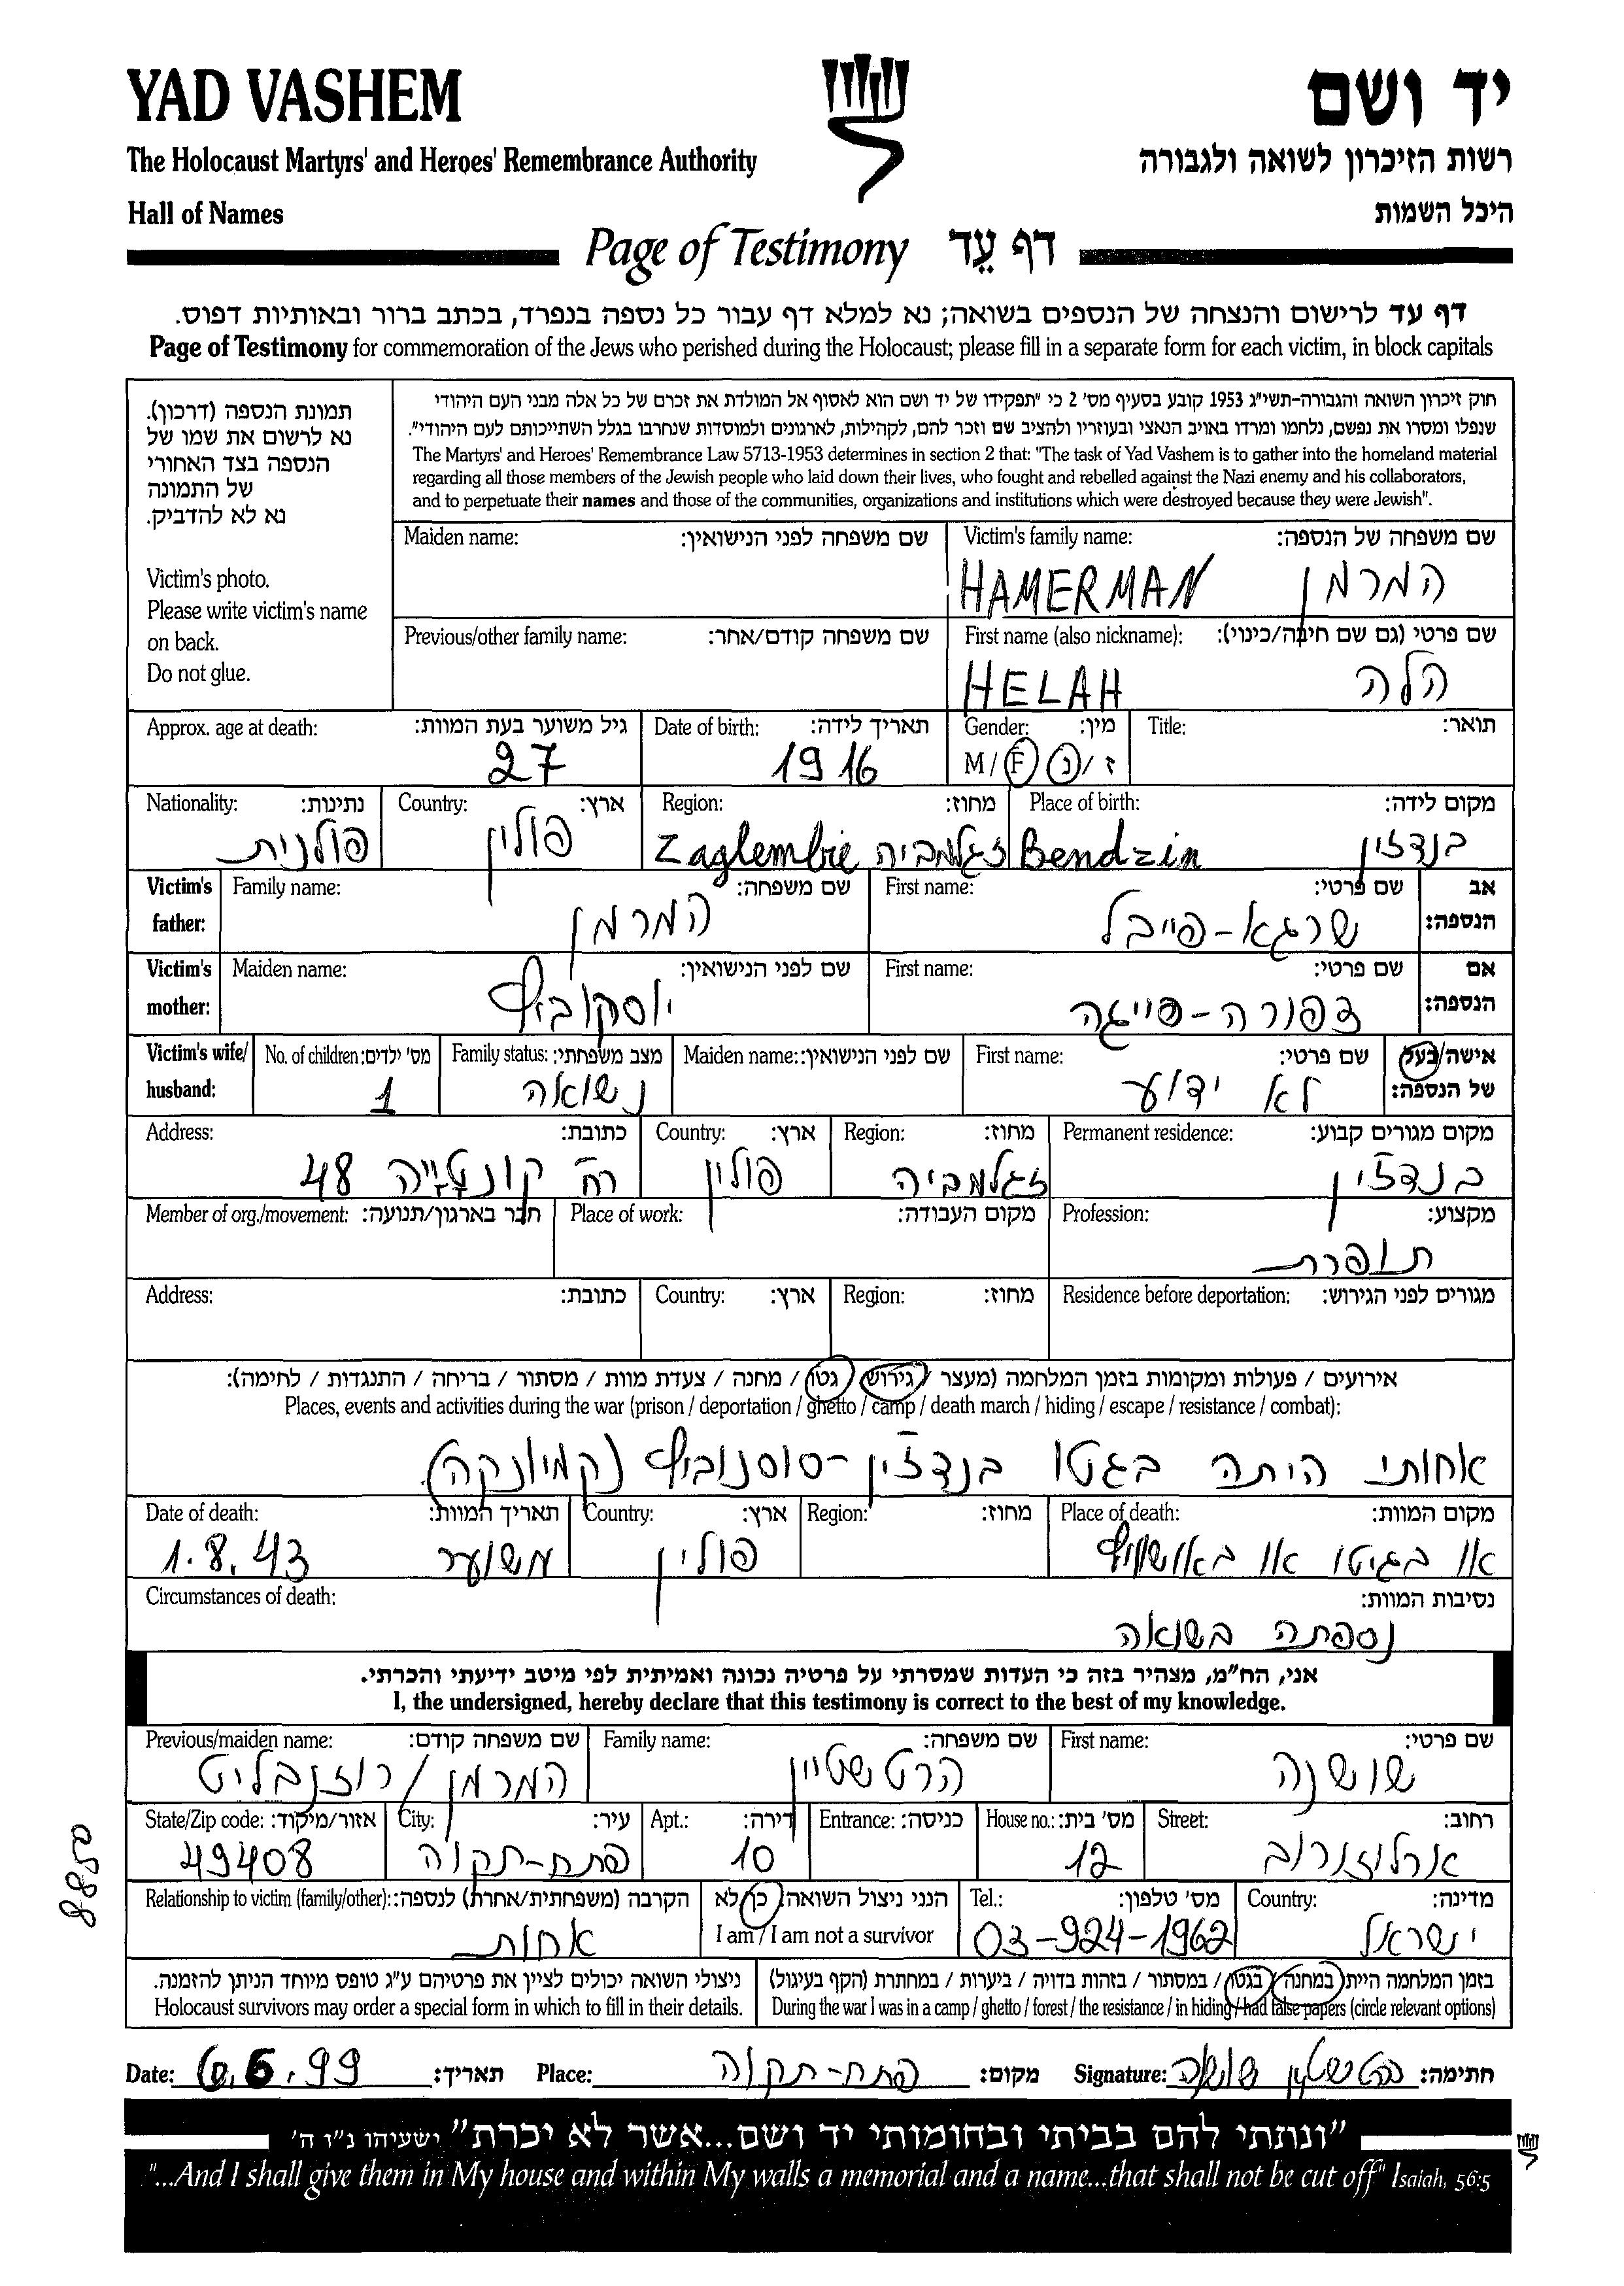 YAD VASHEM
יד ושם
The Holocaust Martyrs' and Heroes' Remembrance Authority
רשות הזיכרון לשואה ולגבורה
Hall of Names
היכל השמות
Page of Testimony דף עֵד
דף עד לרישום והנצחה של הנספים בשואה; נא למלא דף עבור כל נספה בנפרד, בכתב ברור ובאותיות דפוס.
Page of Testimony for commemoration of the Jews who perished during the Holocaust; please fill in a separate form for each victim, in block capitals
תמונת הנספה (דרכון).
נא לרשום את שמו של
הנספה בצד האחורי
של התמונה
נא לא להדביק.
Victim's photo.
Please write victim's name
on back.
Do not glue.
חוק זיכרון השואה והגבורה-תשי"ג 1953 קובע בסעיף מס' 2 כי "תפקידו של יד ושם הוא לאסוף אל המולדת את זכרם של כל אלה מבני העם היהודי
שנפלו ומסרו את נפשם, נלחמו ומרדו באויב הנאצי ובעוזריו ולהציב שם וזכר להם, לקהילות, לארגונים ולמוסדות שנחרבו בגלל השתייכותם לעם היהודי".
The Martyrs' and Heroes' Remembrance Law 5713-1953 determines in section 2 that: "The task of Yad Vashem is to gather into the homeland material
regarding all those members of the Jewish people who laid down their lives, who fought and rebelled against the Nazi enemy and his collaborators,
and to perpetuate their names and those of the communities, organizations and institutions which were destroyed because they were Jewish".
Maiden name: שם משפחה לפני הנישואין: Victim's family name: שם משפחה של הנספה:
HAMERMAN המרמן
Previous/other family name: שם משפחה קודם/אחר: First name (also nickname): שם פרטי (גם שם חיבה/כינוי):
HELAH הלה
Approx. age at death: גיל משוער בעת המוות: Date of birth: תאריך לידה: Gender: מין: Title: תואר:
27 1916 M / F נ / ז
Nationality: נתינות: Country: ארץ: Region: מחוז: Place of birth: מקום לידה:
פולנית פולין Zaglembie זגלמביה Bendzin בנדzין
Victim's father: Family name: שם משפחה: First name: שם פרטי: אב הנספה:
המרמן שרגא-פייבל
Victim's mother: Maiden name: שם לפני הנישואין: First name: שם פרטי: אם הנספה:
יוסקוביץ צפורה-פייגה
Victim's wife/husband: No. of children: מס' ילדים: Family status: מצב משפחתי: Maiden name: שם לפני הנישואין: First name: שם פרטי: אישה/בעל של הנספה:
1 נשואה לא ידוע
Address: כתובת: Country: ארץ: Region: מחוז: Permanent residence: מקום מגורים קבוע:
רח' קונצייה 48 פולין זגלמביה בנדזין
Member of org./movement: חבר בארגון/תנועה: Place of work: מקום העבודה: Profession: מקצוע:
תופרת
Address: כתובת: Country: ארץ: Region: מחוז: Residence before deportation: מגורים לפני הגירוש:
אירועים / פעולות ומקומות בזמן המלחמה (מעצר / גירוש / גטו / מחנה / צעדת מוות / מסתור / בריחה / התנגדות / לחימה):
Places, events and activities during the war (prison / deportation / ghetto / camp / death march / hiding / escape / resistance / combat):
אחותי היתה בגטו בנדזין-סוסנוביץ (קמיונקה).
Date of death: תאריך המוות: Country: ארץ: Region: מחוז: Place of death: מקום המוות:
1.8.43 משוער פולין או בגיטו או באושוויץ
Circumstances of death: נסיבות המוות:
נספתה בשואה
אני, הח"מ, מצהיר בזה כי העדות שמסרתי על פרטיה נכונה ואמיתית לפי מיטב ידיעתי והכרתי.
I, the undersigned, hereby declare that this testimony is correct to the best of my knowledge.
Previous/maiden name: שם משפחה קודם: Family name: שם משפחה: First name: שם פרטי:
המרמן / רוזנבליט הרטשטיין שושנה
State/Zip code: אזור/מיקוד: City: עיר: Apt.: דירה: Entrance: כניסה: House no.: מס' בית: Street: רחוב:
49408 פתח-תקוה 10 12 ארלוזורוב
Relationship to victim (family/other): הקרבה (משפחתית/אחרת) לנספה: הנני ניצול השואה: כן/לא Tel.: מס' טלפון: Country: מדינה:
אחות I am / I am not a survivor 03-924-1962 ישראל
ניצולי השואה יכולים לציין את פרטיהם ע"ג טופס מיוחד הניתן להזמנה.
Holocaust survivors may order a special form in which to fill in their details.
בזמן המלחמה היית (במחנה / בגטו / במסתור / בזהות בדויה / ביערות / במחתרת (הקף בעיגול)
During the war I was in a camp / ghetto / forest / the resistance / in hiding / had false papers (circle relevant options)
Date: 6.6.99 תאריך: Place: פתח-תקוה מקום: Signature: הרטשטיין שושנה חתימה:
8850
"ונתתי להם בביתי ובחומותי יד ושם...אשר לא יכרת" ישעיהו נ"ו ה'
"...And I shall give them in My house and within My walls a memorial and a name...that shall not be cut off" Isaiah, 56:5